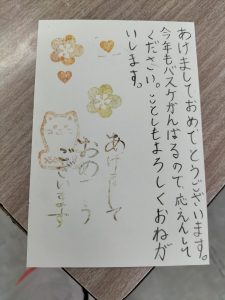 あけましておめでとうございます。
今年もバスケがんばるので、応えんして
ください。ことしもよろしくおねが
いします。
あけまして
おめでとう
ございます